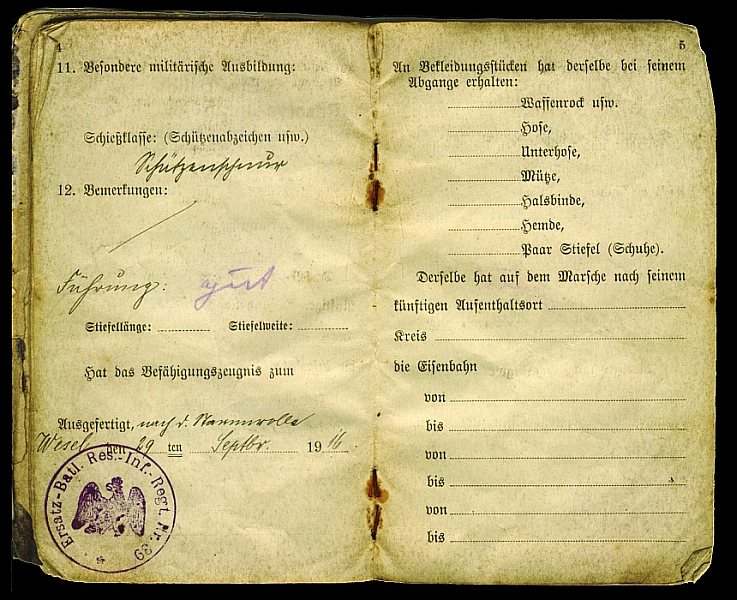 4
11. Besondere militärische Ausbildung:
Schießklasse: (Schützenabzeichen usw.)
Schützenschnur
12. Bemerkungen:
Führung: gut
Stiefellänge: Stiefelweite:
Hat das Befähigungszeugnis zum
Ausgefertigt, nach d. Stammrolle
Wesel den 29 ten Septbr. 1916.
Ersatz-Batl. Res.-Inf.-Regt. Nr. 39
5
An Bekleidungsstücken hat derselbe bei seinem
Abgange erhalten:
Waffenrock usw.
Hose,
Unterhose,
Mütze,
Halsbinde,
Hemde,
Paar Stiefel (Schuhe).
Derselbe hat auf dem Marsche nach seinem
künftigen Aufenthaltsort
Kreis
die Eisenbahn
von
bis
von
bis
von
bis